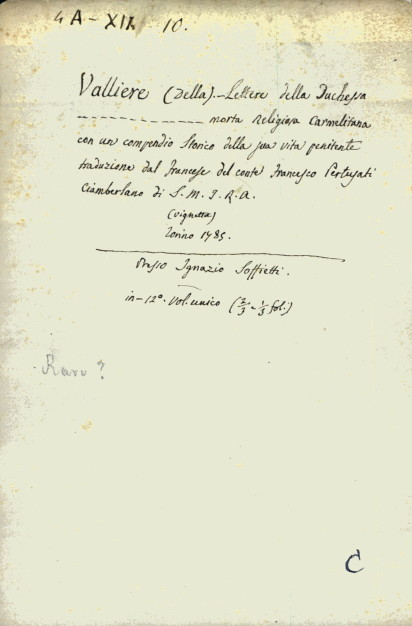 4 A - XII. 10.
Valliere (Della). - Lettere della Duchessa
- - - - - - - - - - - - - morta Religiosa Carmelitana
con un compendio Storico della sua vita penitente
traduzione dal francese del conte Francesco Pertusati
Ciamberlano di S. M. I. R. A.
(vignetta)
Torino 1785.
Presso Ignazio Soffietti.
in-12°. Vol. unico (2/3 - 1/3 fol.)
Raro ?
C